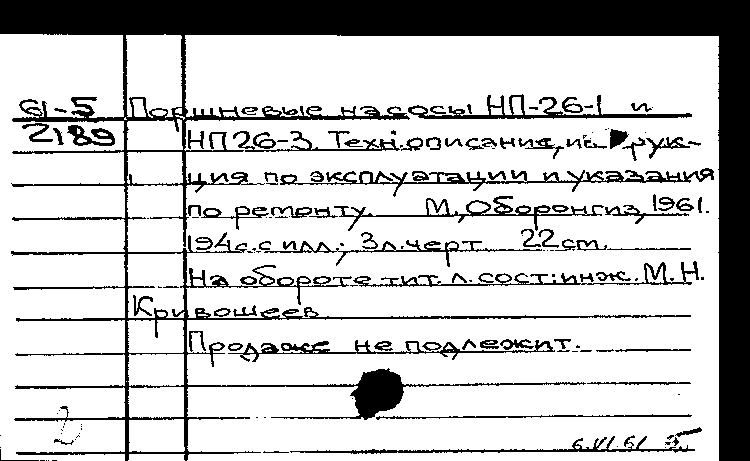 61-5 Поршневые насосы НП-26-1 и
2189 НП26-3. Техн.описание, рук-
ция по эксплуатации и указания
по ремонту. М.,Оборонгиз,1961.
194с.с илл.; 3л.черт. 22см.
На обороте тит.л.сост:инж.М.Н.
Кривошеев.
Продаже не подлежит.
2
6.VI.61